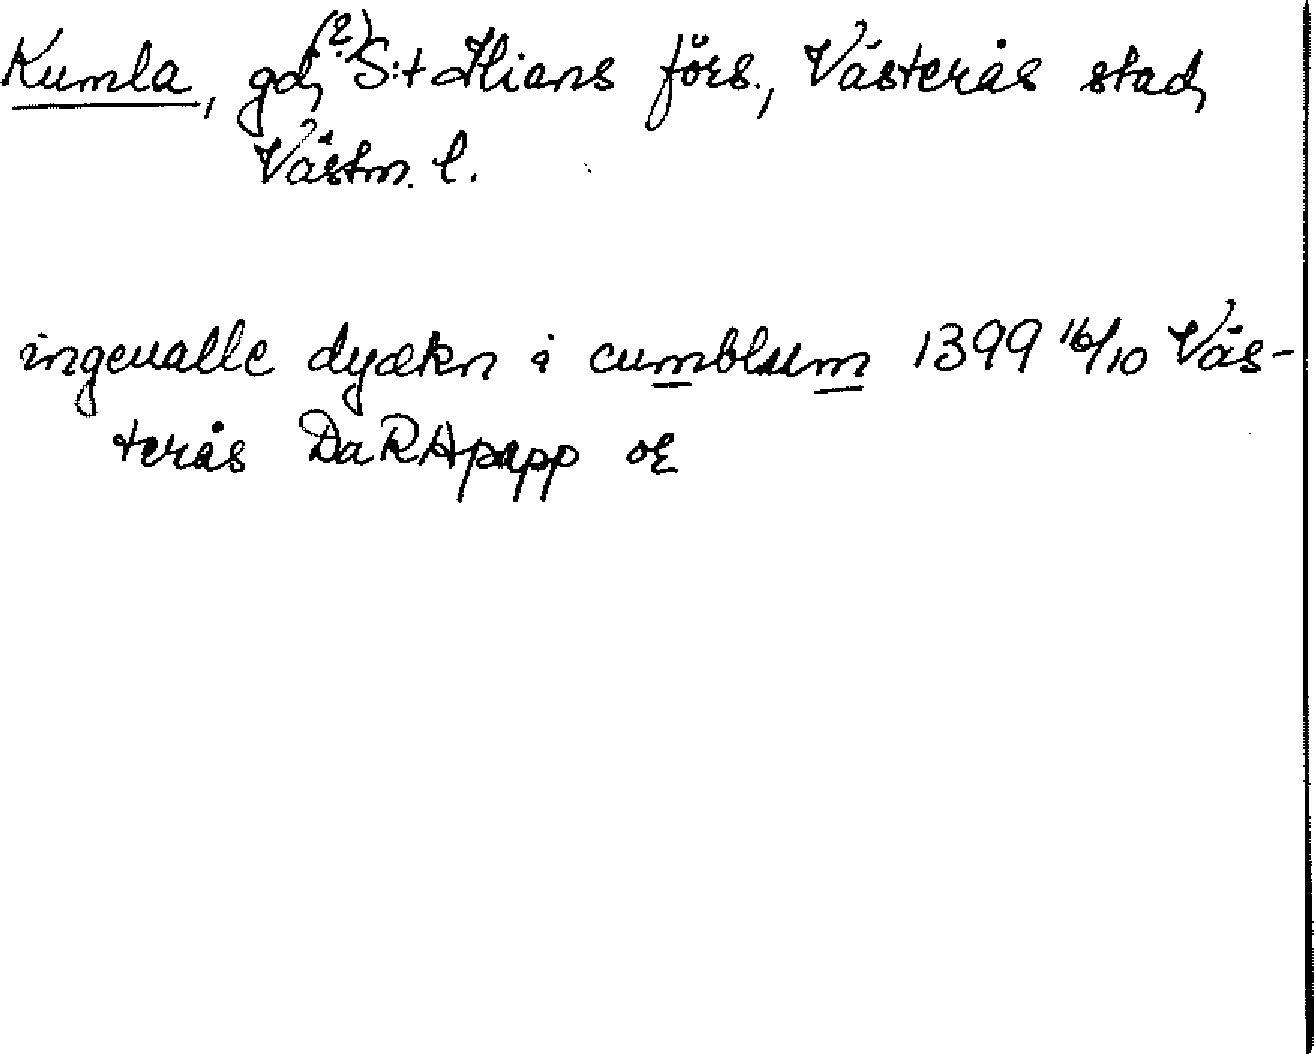 Kumla, gd,(?) S:t Ilians förs., Västerås stad,
Västm. l.
ingeualle dyækn i cumblum 1399 16/10 Väs-
terås DaRApapp or